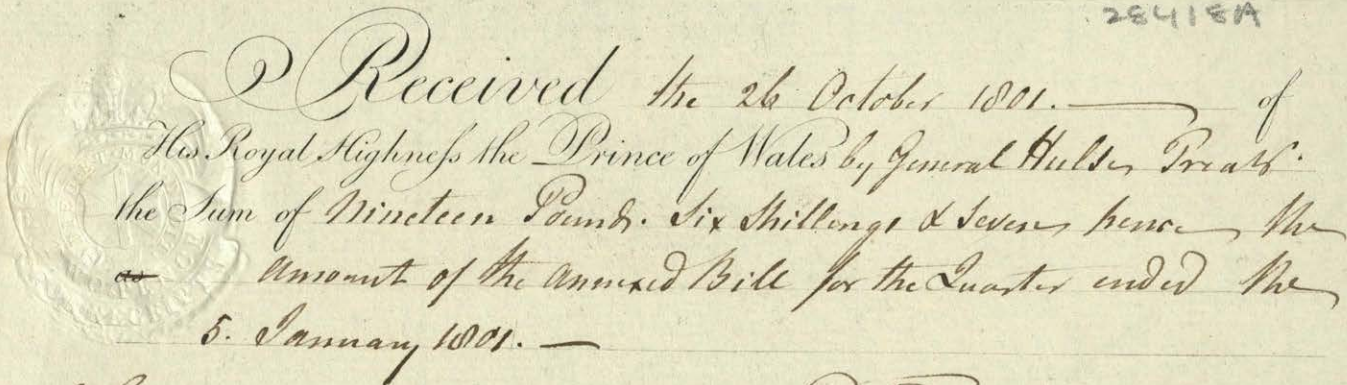 28418A
Received the 26 October 1801. — of
His Royal Highneſs the Prince of Wales by General Hulse Treasr.
the Sum of Nineteen Pounds. Six Shillings & Seven pence the
as amount of the annexed Bill for the Quarter ended the
5. January 1801. —